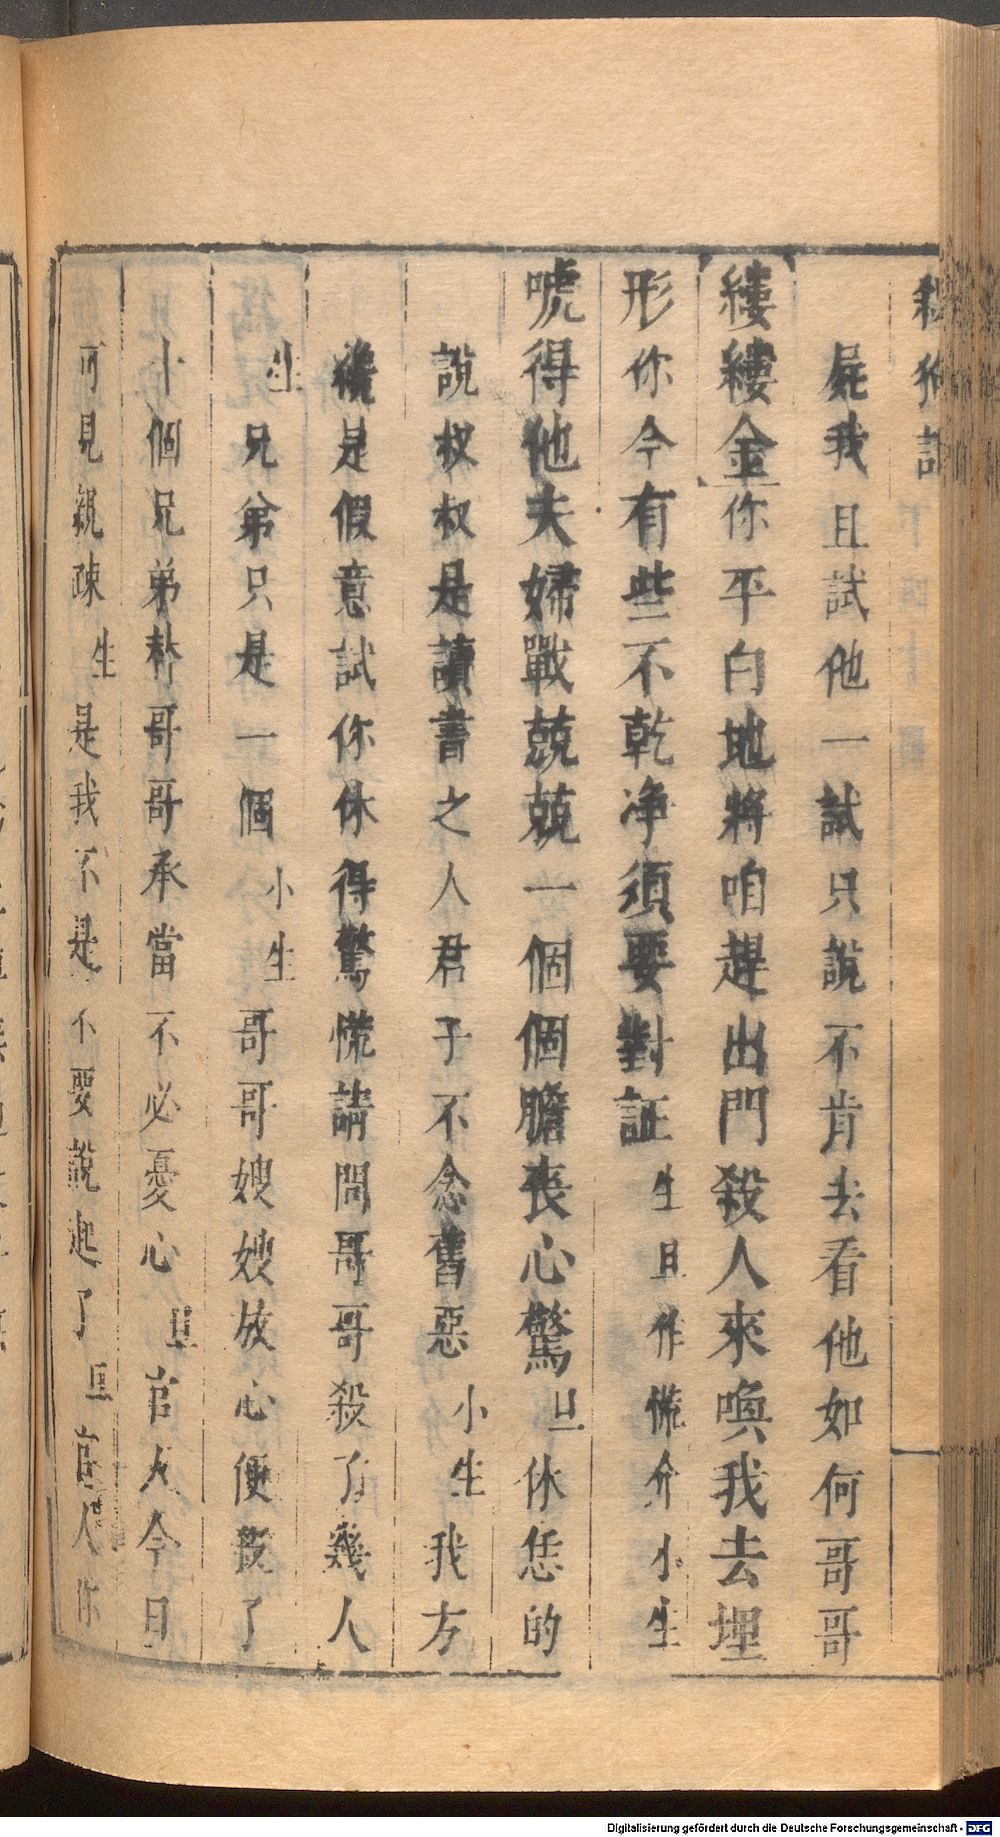 殺狗記
屍我且試他一試只說不肯去看他如何哥哥
縷縷金你平白地將咱趕出門殺人來喚我去埋
形你今有些不乾净須要對証生旦作慌介小生
唬得他夫婦戰兢兢一個個膽喪心驚旦休恁的
說叔叔是讀書之人君子不念舊惡小生我方
纔是假意試你休得驚慌請問哥哥殺了幾人
生兄弟只是一個小生哥哥嫂嫂放心便殺了
十個兄弟替哥哥承當不必憂心旦官人今日
可見親疎生是我不是不要說起了旦官人你
Digitalisierung gefördert durch die Deutsche Forschungsgemeinschaft - DFG